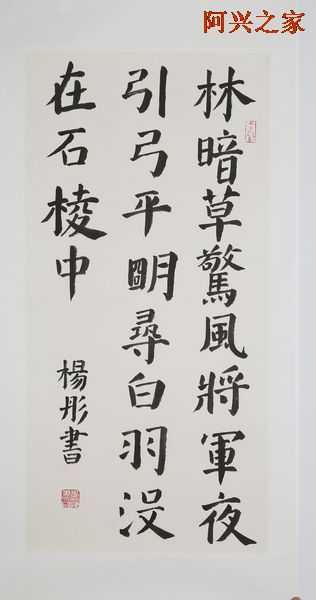 阿兴之家
林暗草驚風將軍夜
引弓平明尋白羽没
在石棱中
楊彤書